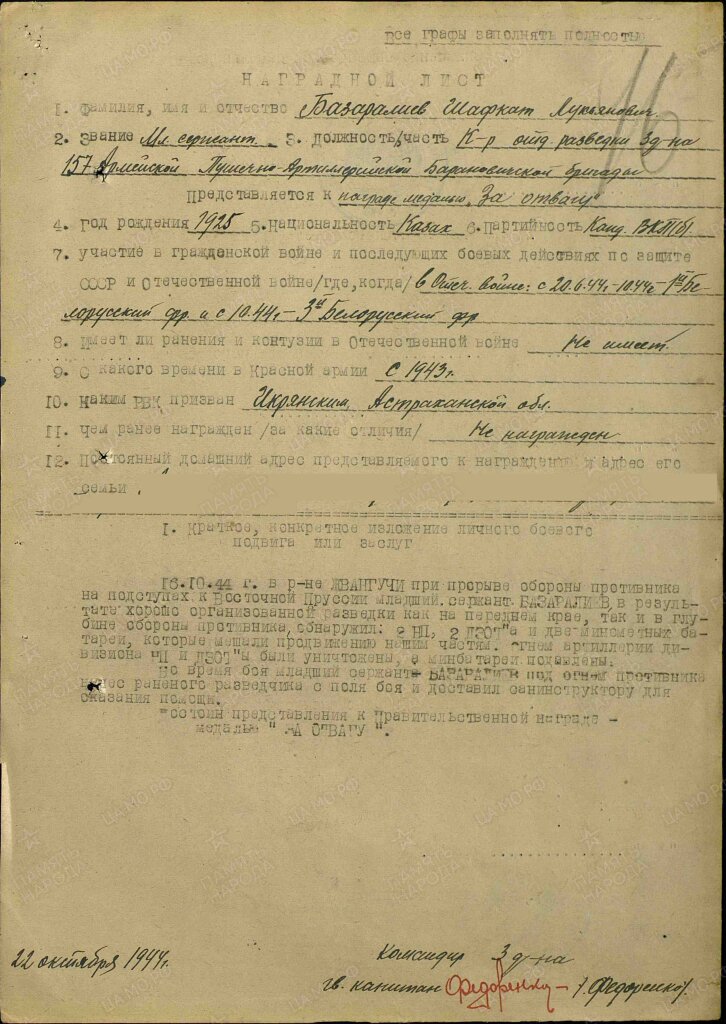 Все графы заполнять полностью
НАГРАДНОЙ ЛИСТ
16
1. Фамилия, имя и отчество Базаралиев Шафкат Лукьянович
2. Звание Мл сержант 3. должность, часть К-р отд разведки 3 д-на
157 Армейской Пушечно-Артиллерийской Барановичской бригады
Представляется к награде медалью "За отвагу"
4. Год рождения 1925 5. Национальность Казах 6. Партийность Канд. ВКП(б)
7. участие в гражданской войне и последующих боевых действиях по защите
СССР и Отечественной войне/где, когда/ в Отеч. войне: с 20.6.44г-10.44г-1й Бе-
лорусский фр. и с 10.44г-3й Белорусский фр
8. Имеет ли ранения и контузии в Отечественной войне Не имеет.
9. С какого времени в Красной армии с 1943г.
10. Каким РВК призван Икрянским, Астраханской обл.
11. Чем ранее награжден /за какие отличия/ Не награжден
12. Постоянный домашний адрес представляемого к награждению и адрес его
семьи
I. Краткое, конкретное изложение личного боевого
подвига или заслуг
16.10.44 г. в р-не ЖВАНГУЧИ при прорыве обороны противника
на подступах к Восточной Пруссии младший сержант БАЗАРАЛИЕВ в резуль-
тате хорошо организованной разведки как на переднем крае, так и в глу-
бине обороны противника обнаружил: 2 НП, 2 ДЗОТ"а и две минометных ба-
тареи, которые мешали продвижению нашим частям. Огнем артиллерии ди-
визиона НП и ДЗОТ"ы были уничтожены, а минбатареи подавлены.
Во время боя младший сержант БАЗАРАЛИЕВ под огнем противника
вынес раненого разведчика с поля боя и доставил санинструктору для
оказания помощи.
Достоин представления к Правительственной награде -
медалью " ЗА ОТВАГУ ".
22 октября 1944г.
Командир 3 д-на
гв. капитан Федоренко /Федоренко/.
ПАМЯТЬ НАРОДА
ЦАМО РФ